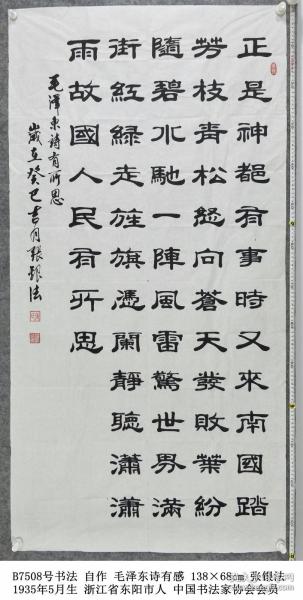 正是神都有事時又來南國踏
芳枝青松怒向蒼天發敗葉紛
隨碧水馳一陣風雷驚世界滿
街紅綠走旌旗憑闌靜聽瀟瀟
雨故國人民有所思
毛澤東詩有所思
歲在癸巳吉月張銀法
B7508号书法 自作 毛泽东诗有感 138×68cm 张银法
1935年5月生 浙江省东阳市人 中国书法家协会会员